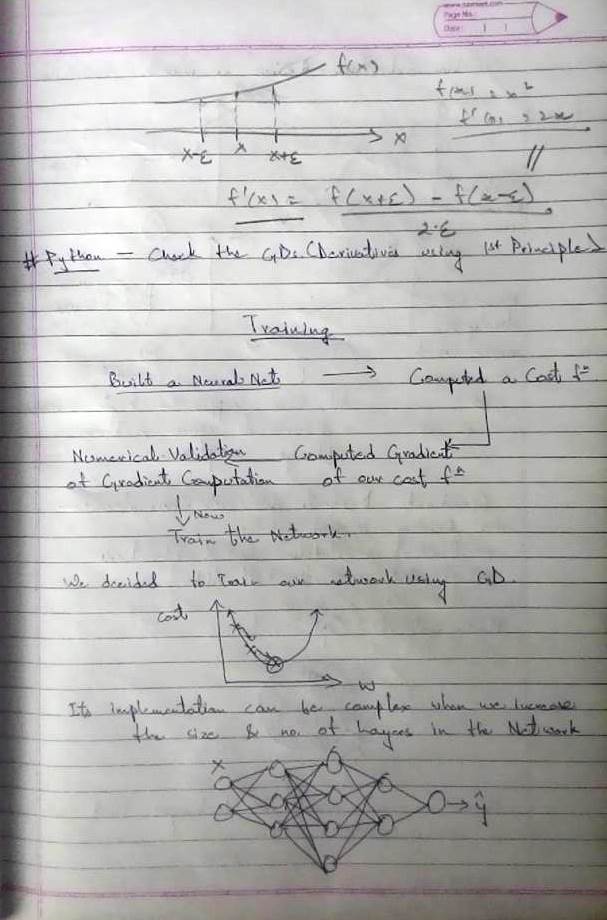 Page No.
Date
f(x)
f(x) = x²
f'(x) = 2x
x-ε x x+ε x
f'(x) = f(x+ε) - f(x-ε)
2·ε
# Python - Check the GDs (Derivatives using 1st Principle)
Training
Built a Neural Net → Computed a Cost fⁿ
Numerical Validation Computed Gradient
of Gradient Computation of our cost fⁿ
↓ Now
Train the Network.
We decided to Train our network using GD.
cost
w
Its implementation can be complex when we increase
the size & no. of Layers in the Network
x
→ ŷ